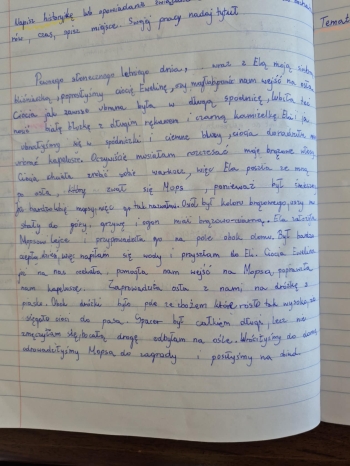 Napisz historyjkę lub opowiadanie
nów, czas, opisz miejsce. Swojej pracy nadaj tytuł.
Temat
Pewnego słonecznego letniego dnia, wraz z Elą moją siostrą
bliźniaczką, poprosiłyśmy ciocię Ewelinę, czy mogłybyśmy wejść na osła.
Ciocia jak zawsze ubrana była w długą spódnicę,
białą bluzkę z długim rękawem i czarną kamizelkę. Ela i ja
ubrałyśmy się w spódniczki i ciemne bluzy, ciocia doradziła nam
ubrać kapelusze. Oczywiście musiałam rozczesać moje brązowe włosy.
Ciocia chciała zrobić sobie warkocz, więc Ela poszła ze mną
po osła, który zwał się Mops, ponieważ był
bardzo lubię mopsy, więc go tak nazwałam. Osioł był koloru brązowego, uszy mu
stały do góry, grzywę i ogon miał brązowo-czarną. Ela założyła
Mopsowi lejce i przyprowadziła go na pole obok domu. Był bardzo
ciepły dzień, więc napiłam się wody i przyszłam do Eli. Ciocia Ewelina
już na nas czekała, pomogła nam wejść na Mopsa, poprawiła
nam kapelusze. Zaprowadziła osła z nami na dróżkę z
piasku. Obok dróżki było pole ze zbożem, które rosło tak wysoko, że
sięgało cioci do pasa. Spacer był całkiem długi, lecz nie
zmęczyłam się, bo całą drogę odbyłam na ośle. Wróciłyśmy do domu,
odprowadziłyśmy Mopsa do zagrody i poszłyśmy na obiad